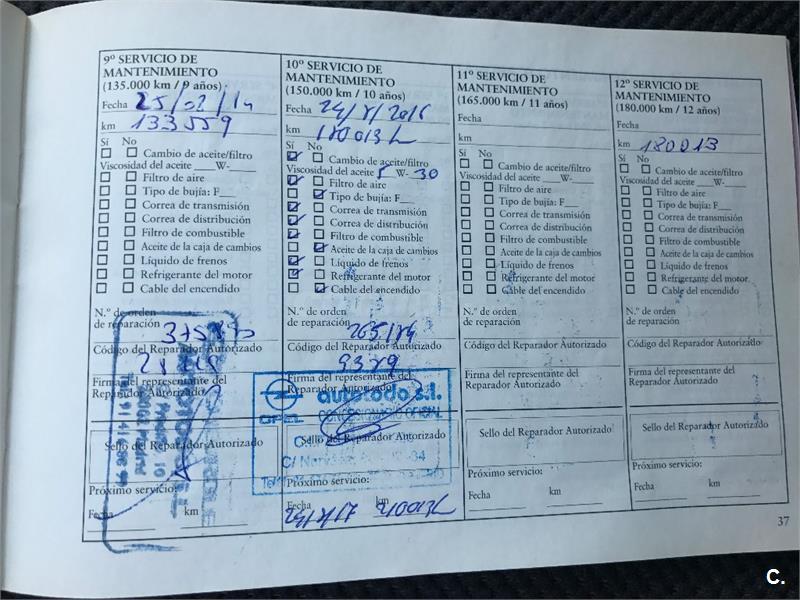 9º SERVICIO DE
MANTENIMIENTO
(135.000 km / 9 años)
Fecha 25/02/14
km 133559
Sí No
Cambio de aceite/filtro
Viscosidad del aceite W-
Filtro de aire
Tipo de bujía: F
Correa de transmisión
Correa de distribución
Filtro de combustible
Aceite de la caja de cambios
Líquido de frenos
Refrigerante del motor
Cable del encendido
N.º de orden
de reparación
Código del Reparador Autorizado
Firma del representante del
Reparador Autorizado
Sello del Reparador Autorizado
Próximo servicio:
Fecha km
10º SERVICIO DE
MANTENIMIENTO
(150.000 km / 10 años)
Fecha 24/8/2016
km 180013
Sí No
Cambio de aceite/filtro
Viscosidad del aceite 5 W- 30
Filtro de aire
Tipo de bujía: F
Correa de transmisión
Correa de distribución
Filtro de combustible
Aceite de la caja de cambios
Líquido de frenos
Refrigerante del motor
Cable del encendido
N.º de orden
de reparación
Código del Reparador Autorizado
Firma del representante del
Reparador Autorizado
OPEL autotodo s.l.
CONCESIONARIO OFICIAL
Sello del Reparador Autorizado
Próximo servicio:
Fecha km
11º SERVICIO DE
MANTENIMIENTO
(165.000 km / 11 años)
Fecha
km
Sí No
Cambio de aceite/filtro
Viscosidad del aceite W-
Filtro de aire
Tipo de bujía: F
Correa de transmisión
Correa de distribución
Filtro de combustible
Aceite de la caja de cambios
Líquido de frenos
Refrigerante del motor
Cable del encendido
N.º de orden
de reparación
Código del Reparador Autorizado
Firma del representante del
Reparador Autorizado
Sello del Reparador Autorizado
Próximo servicio:
Fecha km
12º SERVICIO DE
MANTENIMIENTO
(180.000 km / 12 años)
Fecha
km 180013
Sí No
Cambio de aceite/filtro
Viscosidad del aceite W-
Filtro de aire
Tipo de bujía: F
Correa de transmisión
Correa de distribución
Filtro de combustible
Aceite de la caja de cambios
Líquido de frenos
Refrigerante del motor
Cable del encendido
N.º de orden
de reparación
Código del Reparador Autorizado
Firma del representante del
Reparador Autorizado
Sello del Reparador Autorizado
Próximo servicio:
Fecha km
37
C.